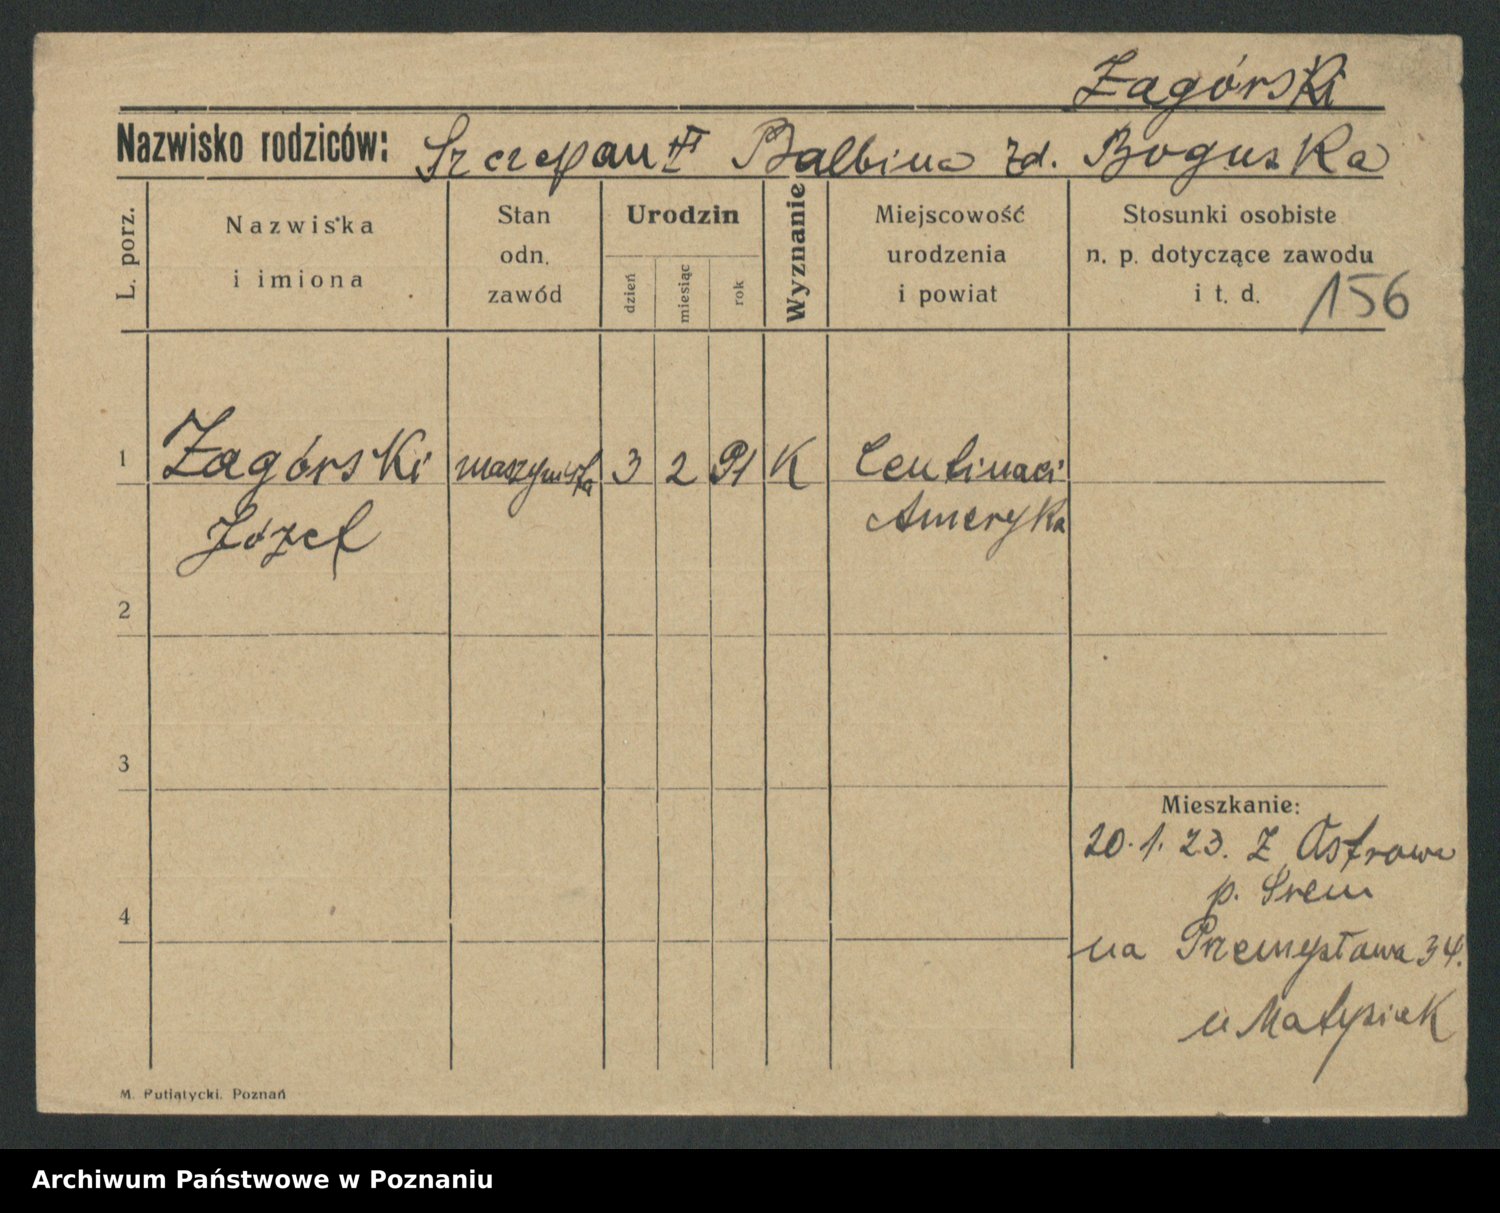 Zagórski
Nazwisko rodziców: Szczepan Balbina zd. Boguska
L. porz.
Nazwiska
i imiona
Stan
odn.
zawód
Urodzin
dzień
miesiąc
rok
Wyznanie
Miejscowość
urodzenia
i powiat
Stosunki osobiste
n. p. dotyczące zawodu
i t. d.
156
1 Zagórski maszynista 3 2 91 K Centinaci
Józef Ameryka
2
3
Mieszkanie:
20.1.23. Z Ostrowa
p. Srem
4
na Przemysława 34.
u Matysiak
M. Putiatycki. Poznań
Archiwum Państwowe w Poznaniu